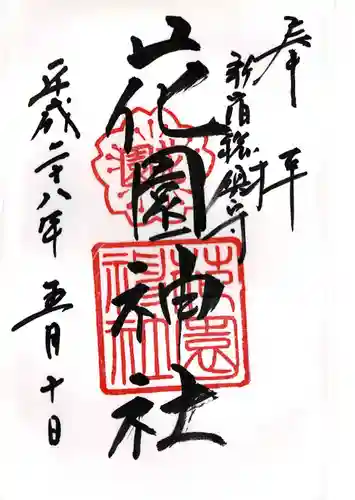 奉拝
新宿総鎮守
花園神社
平成二十八年
五月十日
花園
神社